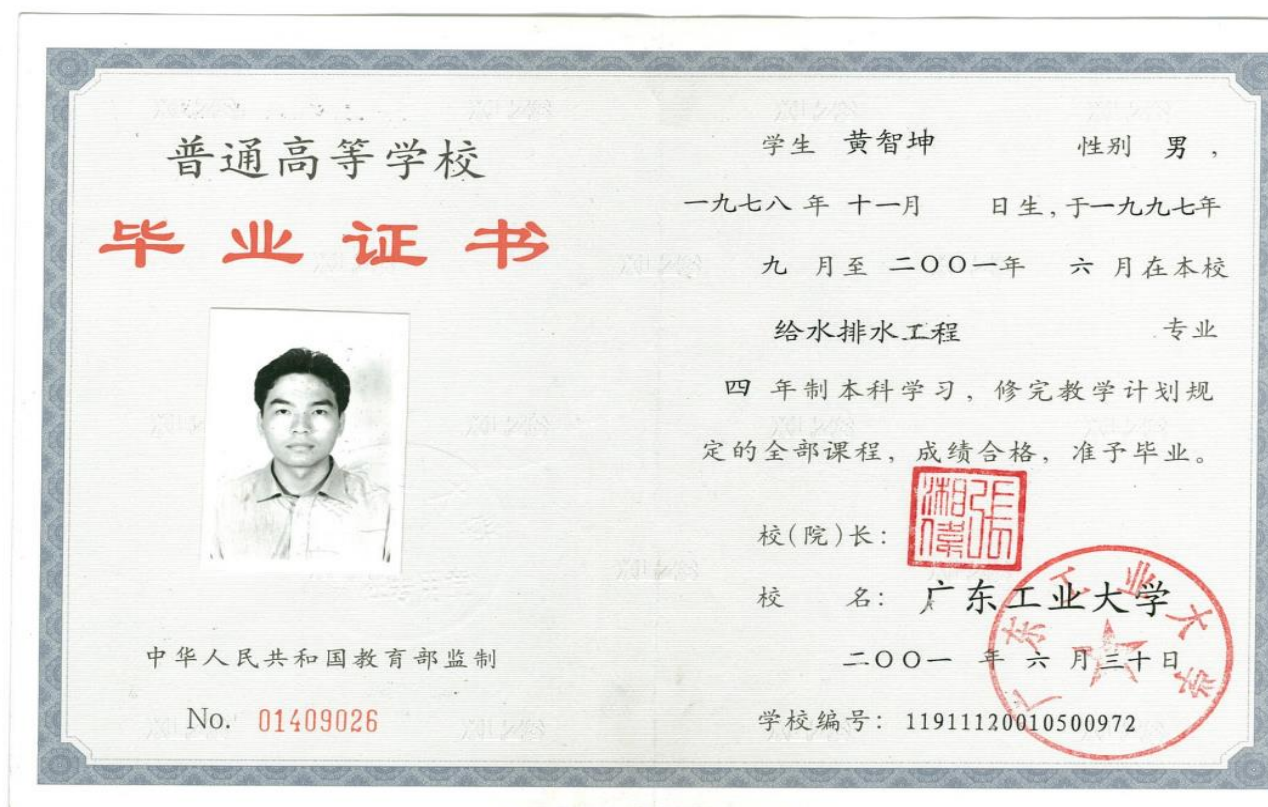 普通高等学校
毕业证书
中华人民共和国教育部监制
No. 01409026
学生 黄智坤 性别 男,
一九七八 年 十一月 日生,于一九九七年
九 月至 二〇〇一年 六 月在本校
给水排水工程 专业
四 年制本科学习,修完教学计划规
定的全部课程,成绩合格,准予毕业。
校(院)长:
张湘伟
校 名: 广东工业大学
二〇〇一 年 六 月三十日
学校编号: 11911120010500972
广东工业大学